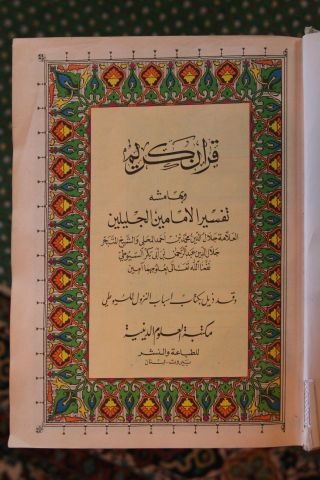 قرآن كريم
وبهامشه
تفسير الإمامين الجليلين
العلامة جلال الدين محمد بن أحمد المحلي والشيخ المتبحر
جلال الدين عبد الرحمن بن أبي بكر السيوطي
نفعنا الله تعالى بعلومهما آمين
وقد ذيل بكتاب أسباب النزول للسيوطي
مكتبة العلوم الدينية
للطباعة والنشر
بيروت - لبنان